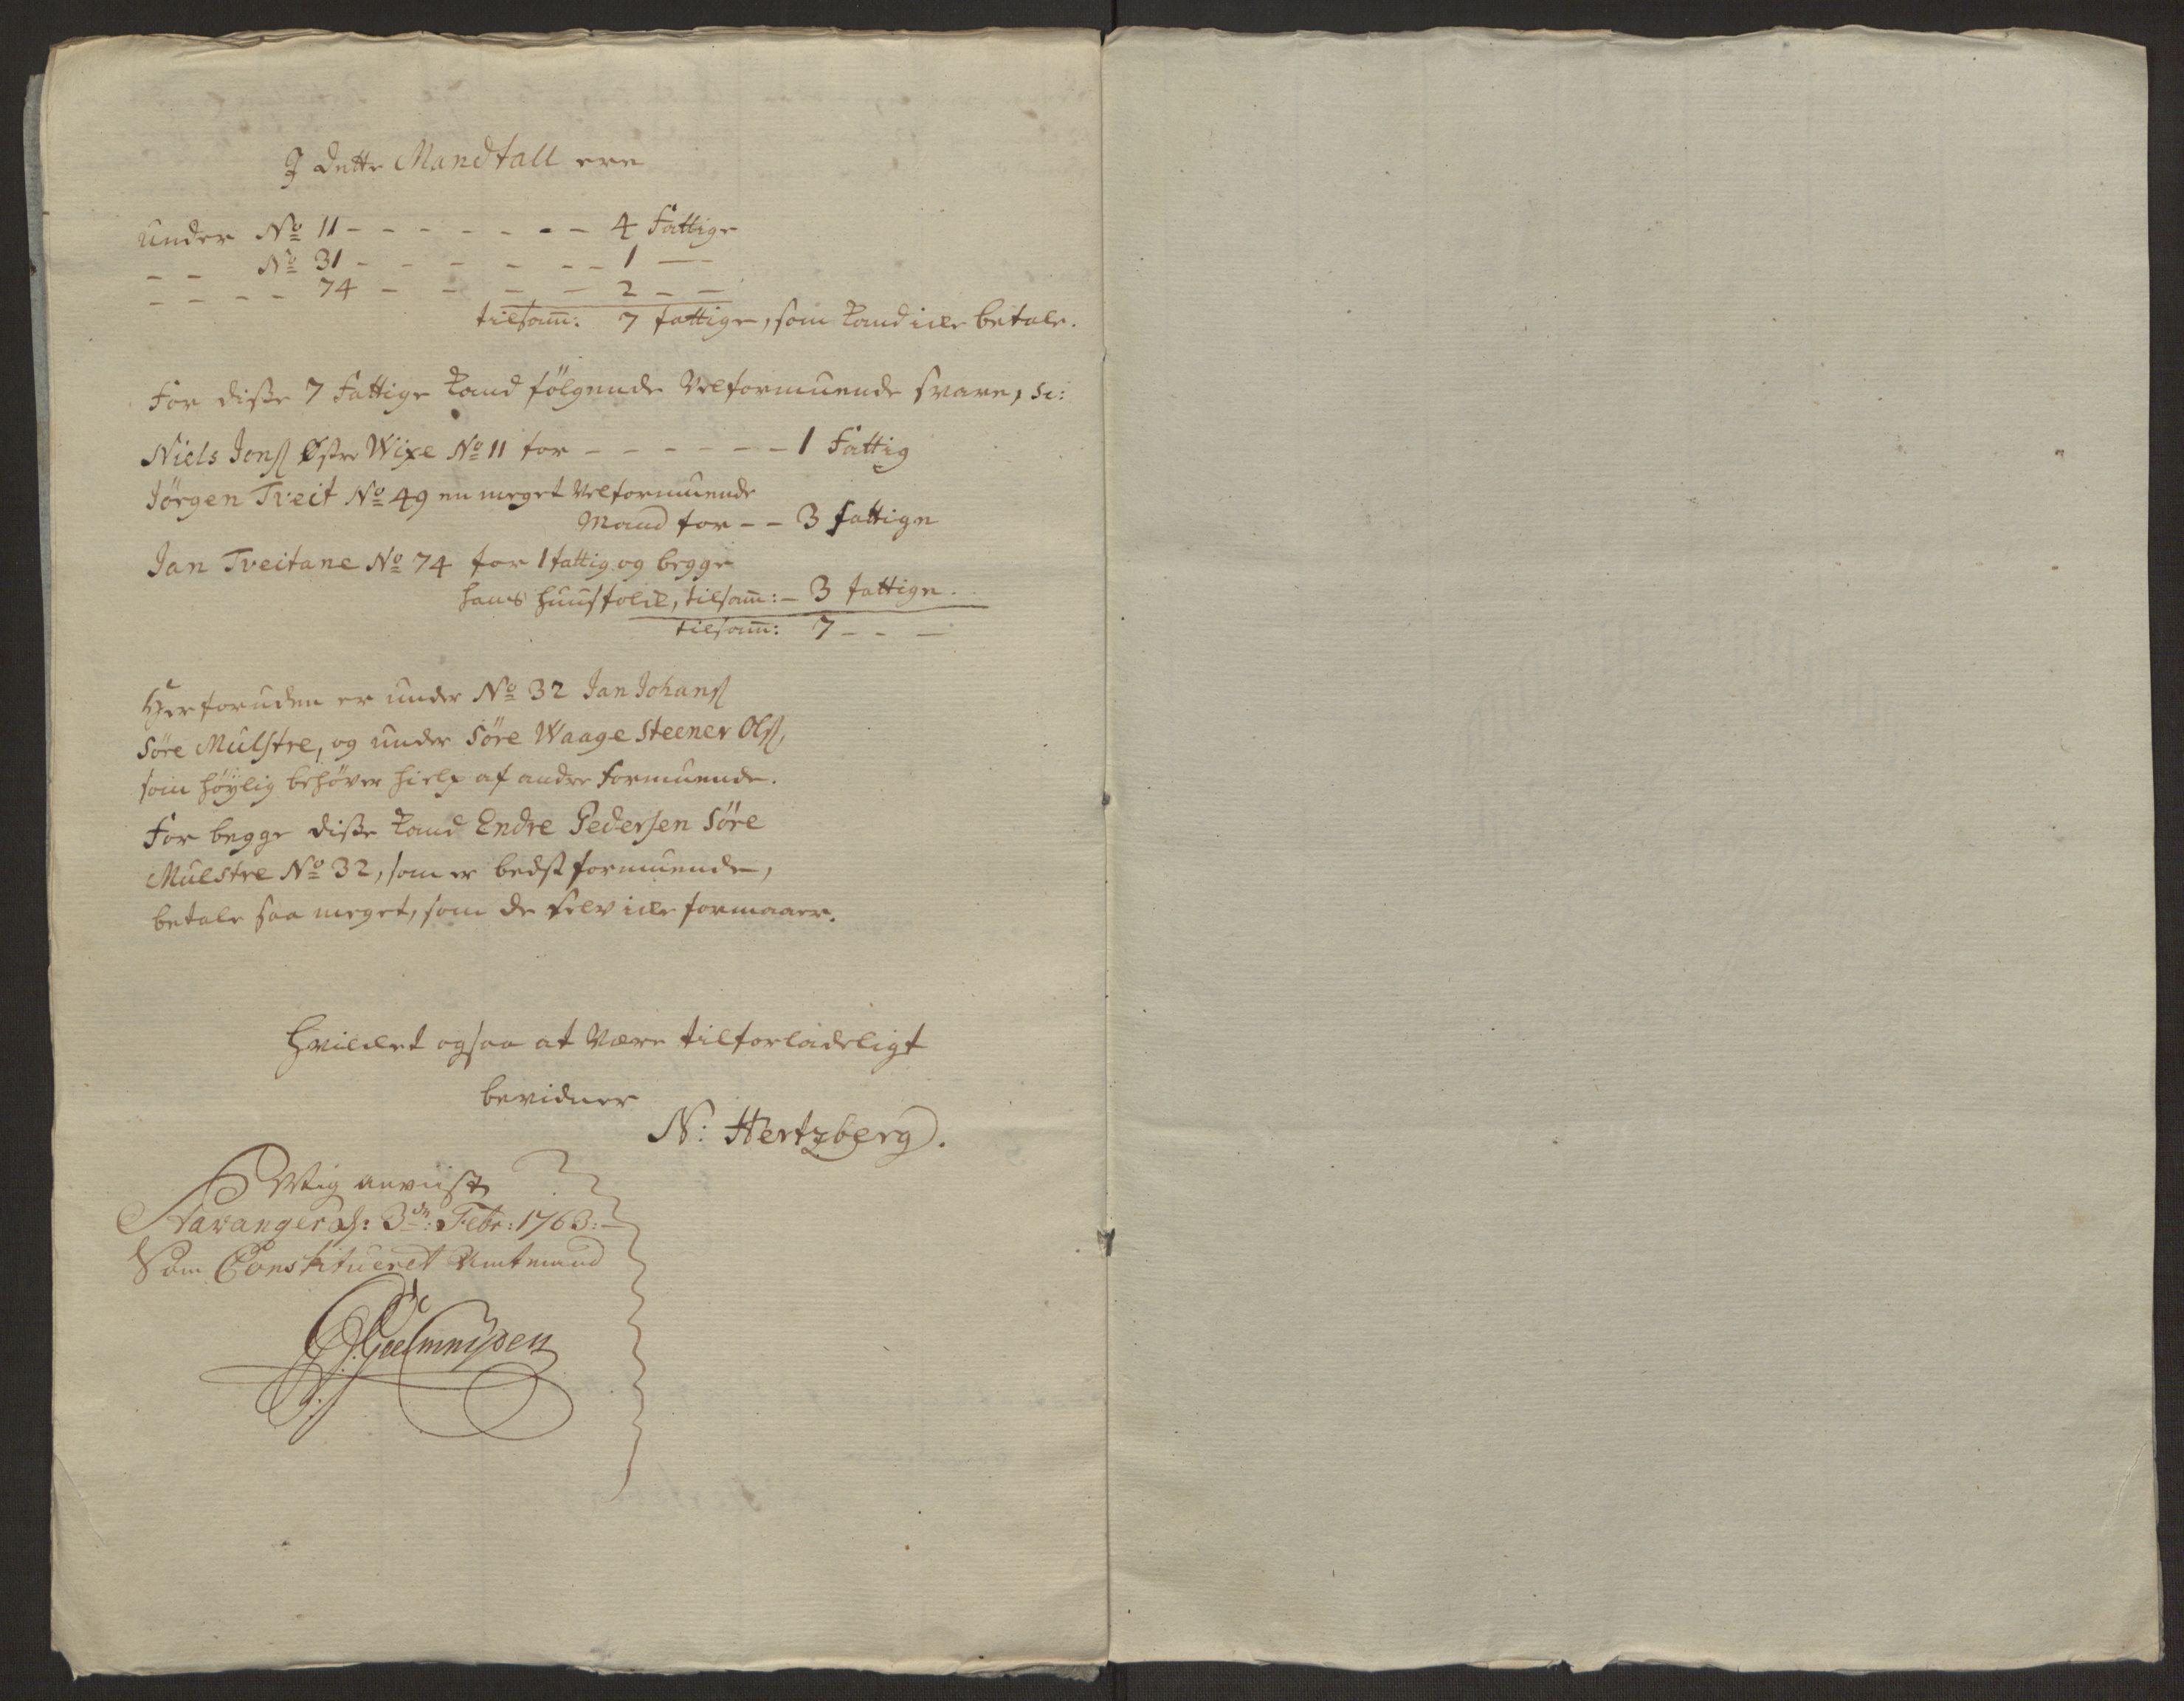 I dette Mandtall ere
Under No 11 - - - - - - - 4 Fattige
- - No 31 - - - - - - 1 -
- - - - 74 - - - - 2 - -
tilsam: 7 fattige, som kand icke betale.
For disse 7 Fattige kand følgende Velformuende svare, sc:
Niels Jons. Østre Wixe No 11 for - - - - - - 1 Fattig
Jörgen Tveit No 49 en meget Velformuende
Mand for - - 3 fattige
Jan Tveitane No 74 for 1 fattig og begge
hans huusfolck, tilsam: - 3 fattige.
tilsam: 7 - - -
Herforuden er under No 32 Jan Johans.
Söre Mulstre, og under Söre Waage Steener Ols.,
som höylig behöver hielp af andre Formuende.
For begge disse kand Endre Pedersen Söre
Mulstre No 32, som er bedst formuende,
betale saa meget, som de selv icke formaaer.
Hvilcket ogsaa at være tilforladeligt
bevidner
N: Hertzberg.
Mig anviist
Stavanger d: 3de: Febr: 1763.
Som Constitueret Amtmand